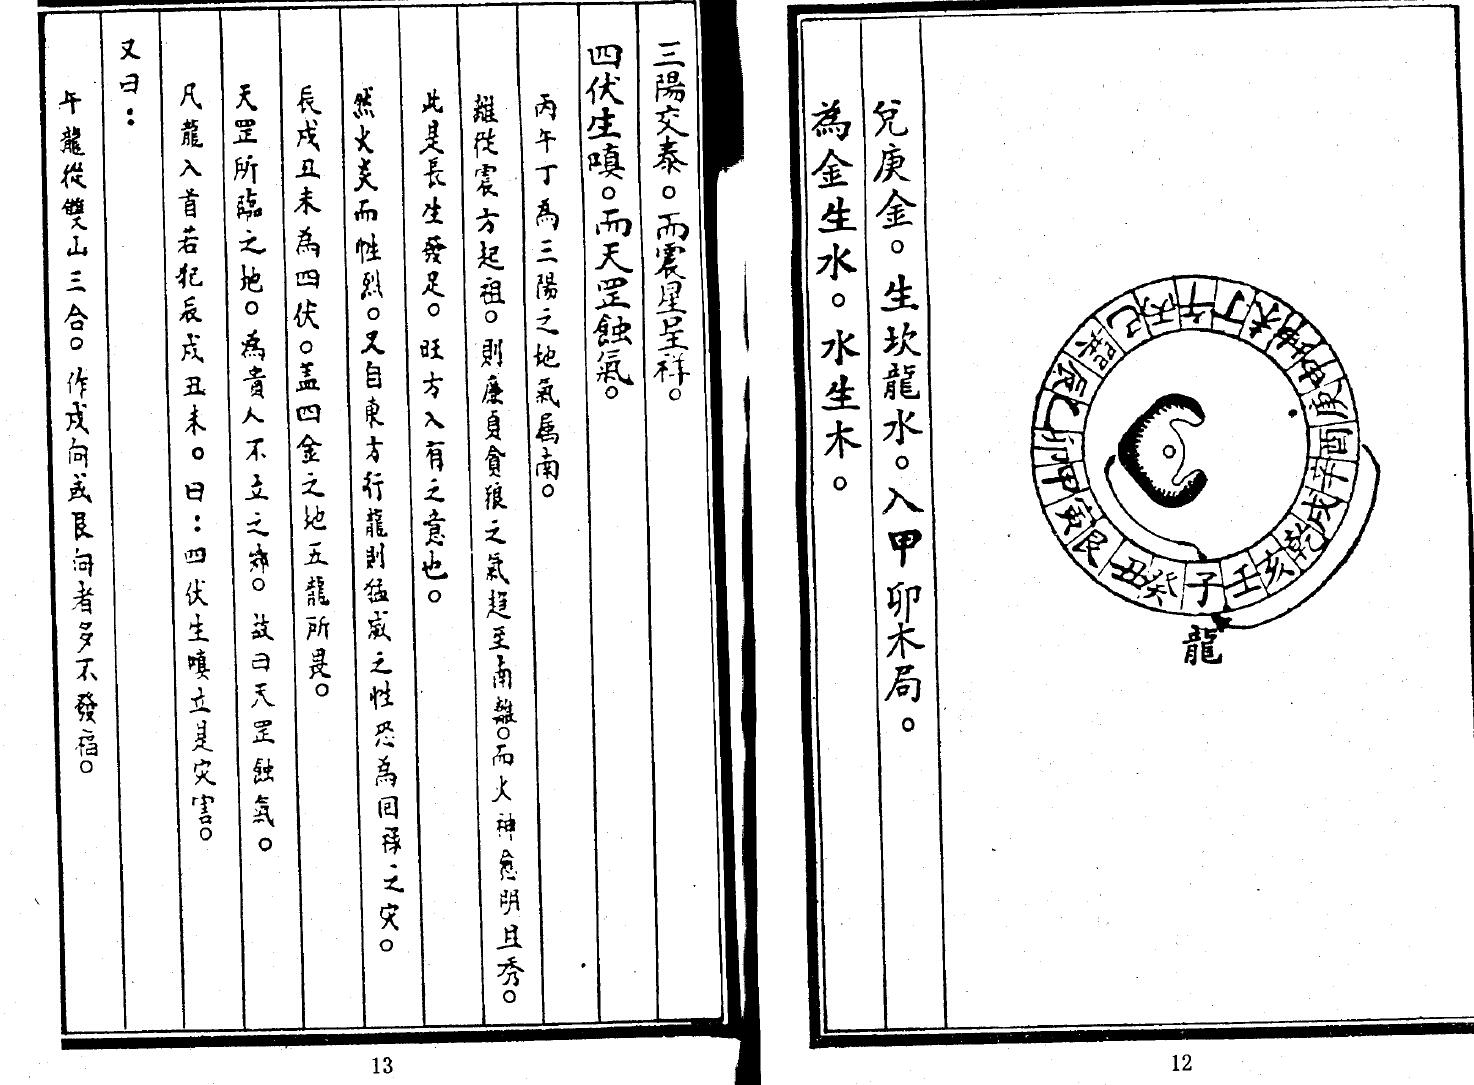 午
丁
未
坤
申
庚
酉
辛
戌
乾
亥
壬
子
癸
丑
艮
寅
甲
卯
乙
辰
巽
巳
丙
龍
兌庚金。生坎龍水。入甲卯木局。
為金生水。水生木。
12
三陽交泰。而震星呈祥。
四伏生嗔。而天罡蝕氣。
丙午丁為三陽之地氣属南。
雖從震方起祖。則廉貞貪狼之氣趋至南離。而火神愈明且秀。
此是長生發足。旺方入有之意也。
然火炎而性烈。又自東方行龍則猛威之性恐為回祿之灾。
辰戌丑未為四伏。盖四金之地五龍所畏。
天罡所臨之地。為貴人不立之鄉。故曰天罡蝕氣。
凡龍入首若犯辰戌丑未。曰：四伏生嗔立是灾害。
又曰：
午龍從雙山三合。作戌向或艮向者多不發福。
13